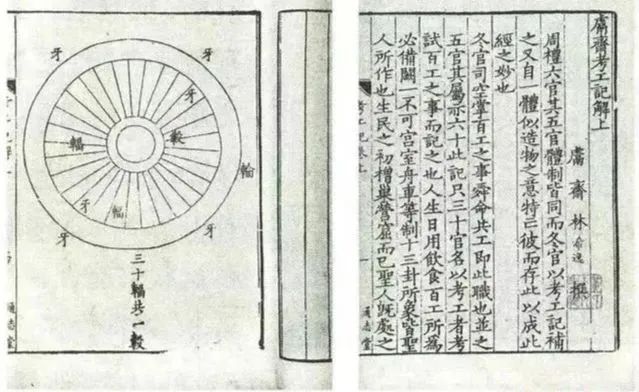 鬳齋考工記解上
鬳齋林希逸撰
周禮六官其五官體制皆同而冬官以考工記補
之又自一體似造物之意特亡彼而存此以成此
經之妙也
冬官司空掌百工之事舜命共工即此職也並之
五官其屬亦六十此記只三十官名以考工者考
試百工之事而記之也人生日用飲食百工所為
必備闕一不可宮室舟車等制十三卦所象皆聖
人所作也生民之初橧巢營窟而已聖人既處之
通志堂
牙
牙
牙
轂
輻
輪
牙
輻
牙
牙
三十輻共一轂
通志堂